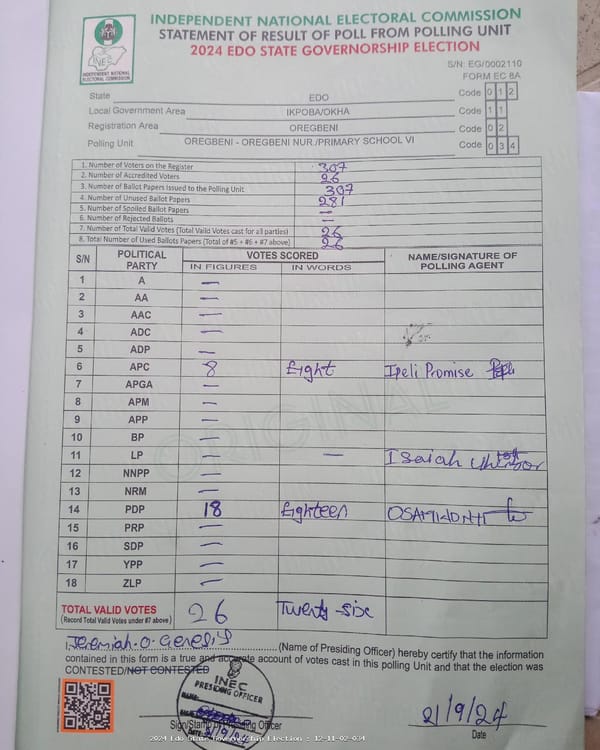 INDEPENDENT NATIONAL ELECTORAL COMMISSION
STATEMENT OF RESULT OF POLL FROM POLLING UNIT
2024 EDO STATE GOVERNORSHIP ELECTION
INEC
INDEPENDENT NATIONAL ELECTORAL COMMISSION
S/N: EG/0002110
FORM EC 8A
State EDO Code 0 1 2
Local Government Area IKPOBA/OKHA Code 1 1
Registration Area OREGBENI Code 0 2
Polling Unit OREGBENI - OREGBENI NUR./PRIMARY SCHOOL VI Code 0 3 4
1. Number of Voters on the Register 307
2. Number of Accredited Voters 26
3. Number of Ballot Papers Issued to the Polling Unit 307
4. Number of Unused Ballot Papers 281
5. Number of Spoiled Ballot Papers —
6. Number of Rejected Ballots —
7. Number of Total Valid Votes (Total Valid Votes cast for all parties) 26
8. Total Number of Used Ballots Papers (Total of #5 + #6 + #7 above) 26
S/N POLITICAL PARTY VOTES SCORED NAME/SIGNATURE OF POLLING AGENT
IN FIGURES IN WORDS
1 A —
2 AA —
3 AAC —
4 ADC —
5 ADP —
6 APC 8 Eight Ipeli Promise
7 APGA —
8 APM —
9 APP —
10 BP —
11 LP — — Isaiah
12 NNPP —
13 NRM —
14 PDP 18 Eighteen
15 PRP —
16 SDP —
17 YPP —
18 ZLP —
ORIGINAL
TOTAL VALID VOTES 26 Twenty-six
(Record Total Valid Votes under #7 above)
I, Jeremiah-O-Genesis (Name of Presiding Officer) hereby certify that the information
contained in this form is a true and accurate account of votes cast in this polling Unit and that the election was
CONTESTED/NOT CONTESTED
INEC
PRESIDING OFFICER
NAME:
DATE: 21/9/24
Sign/Stamp by Presiding Officer
21/9/24
Date
2024 Edo State Governorship Election : 12-11-02-034